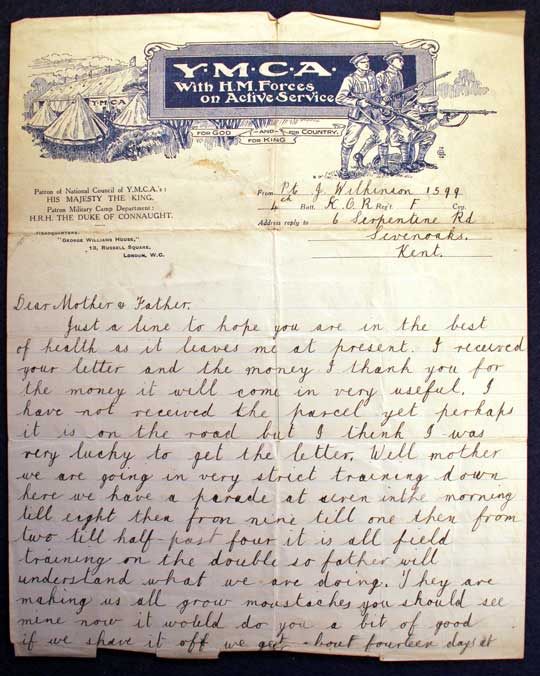 Y·M·C·A·
With H.M. Forces
on Active Service
FOR GOD —AND— FOR COUNTRY.
FOR KING
Patron of National Council of Y.M.C.A.'s:
HIS MAJESTY THE KING.
Patron Military Camp Department:
H.R.H. THE DUKE OF CONNAUGHT.
HEADQUARTERS:
"GEORGE WILLIAMS HOUSE,"
13, RUSSELL SQUARE,
LONDON, W.C.
From Pte J. Wilkinson 1399
4th Batt. K.O.R Reg't. F Coy.
Address reply to 6 Serpentine Rd
Sevenoaks.
Kent.
Dear Mother & Father.
Just a line to hope you are in the best
of health as it leaves me at present. I received
your letter and the money I thank you for
the money it will come in very useful. I
have not received the parcel yet perhaps
it is on the road but I think I was
very lucky to get the letter. Well mother
we are going in very strict training down
here we have a parade at seven in the morning
till eight then from nine till one then from
two till half past four it is all field
training on the double so father will
understand what we are doing. They are
making us all grow moustaches you should see
mine now it would do you a bit of good
if we shave it off we get bout fourteen days at